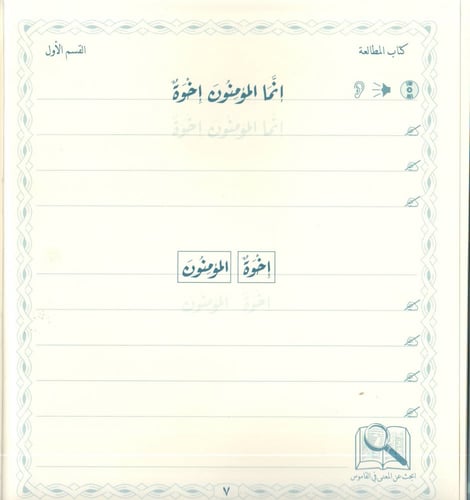 كتاب المطالعة القسم الأول
اِنَّمَا المُؤمِنُونَ إخْوَةٌ
اِنَّمَا المُؤمِنُونَ إخْوَةٌ
إخْوَةٌ المُؤمِنُونَ
إخْوَةٌ المُؤمِنُونَ
ابحث عن المعنى في القاموس
٧